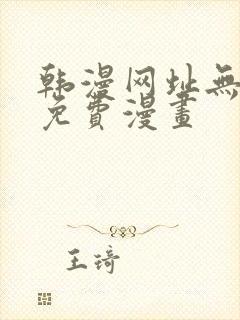 韩漫网址無
免費漫畫
王琦